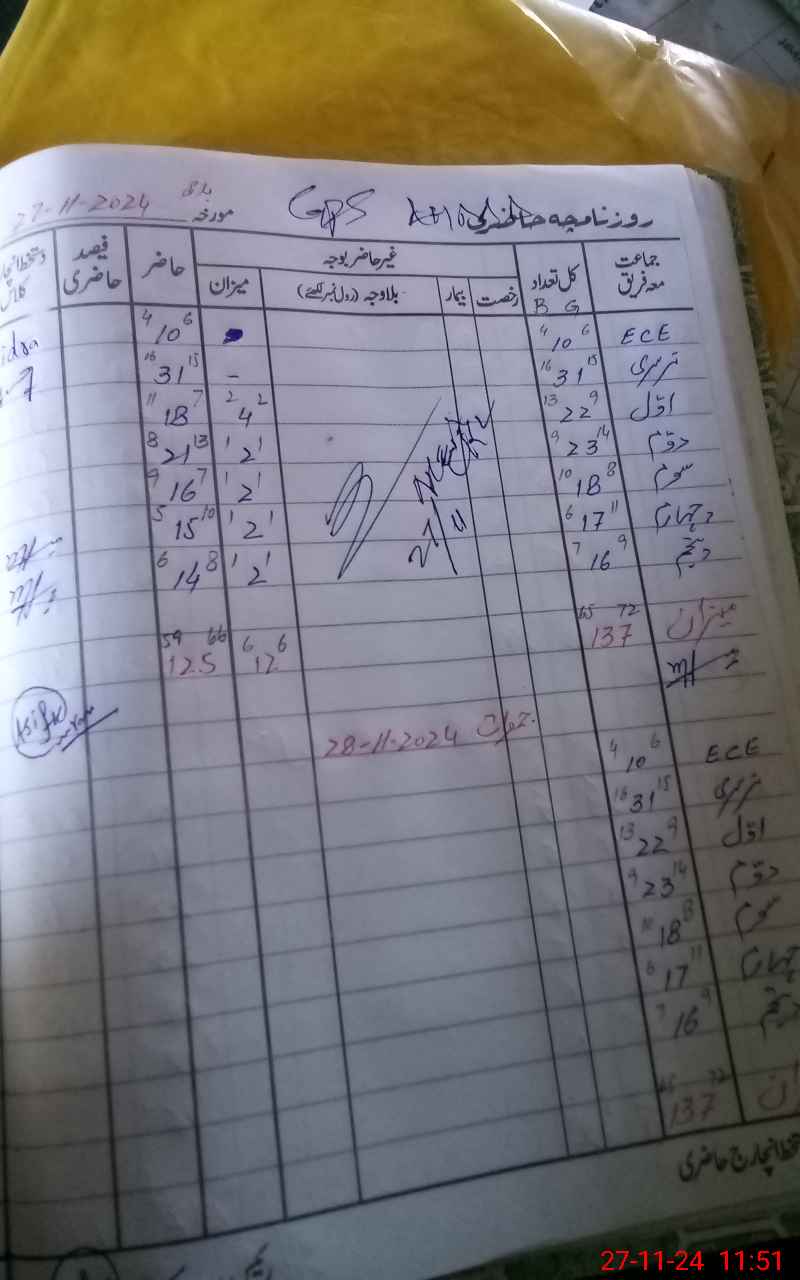 روزنامچہ حاضری GPS مورخہ بدھ 27-11-2024
جماعت معہ فریق کل تعداد غیر حاضر بوجہ حاضر فیصد حاضری
B G رخصت بیمار بلاوجہ (رول نمبر لکھئے) میزان
ECE 4 10 6 4 10 6
نرسری 16 31 15 - 16 31 15
اوّل 13 22 9 2 4 2 11 18 7
دوّم 9 23 14 1 2 1 8 21 13
سوم 10 18 8 1 2 1 9 16 7
چہارم 6 17 11 1 2 1 5 15 10
پنجم 7 16 9 1 2 1 6 14 8
میزان 65 137 72 6 12 6 59 125 66
جمعرات 28-11-2024
ECE 4 10 6
نرسری 16 31 15
اوّل 13 22 9
دوّم 9 23 14
سوم 10 18 8
چہارم 6 17 11
پنجم 7 16 9
65 137 72
انچارج حاضری
27-11-24 11:51